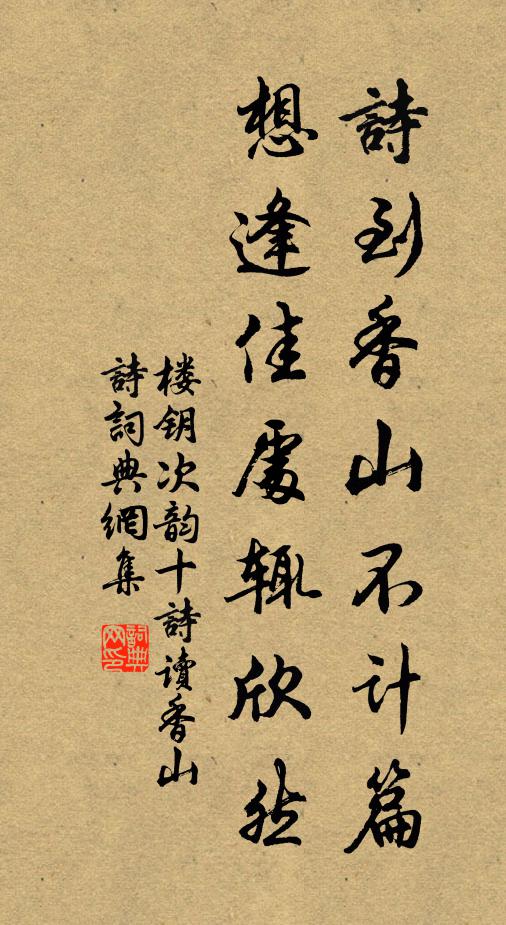 詩到香山不计篇
想逢佳處辄欣然
楼钥次韵十詩读香山
詩詞典網集
詞典
网印